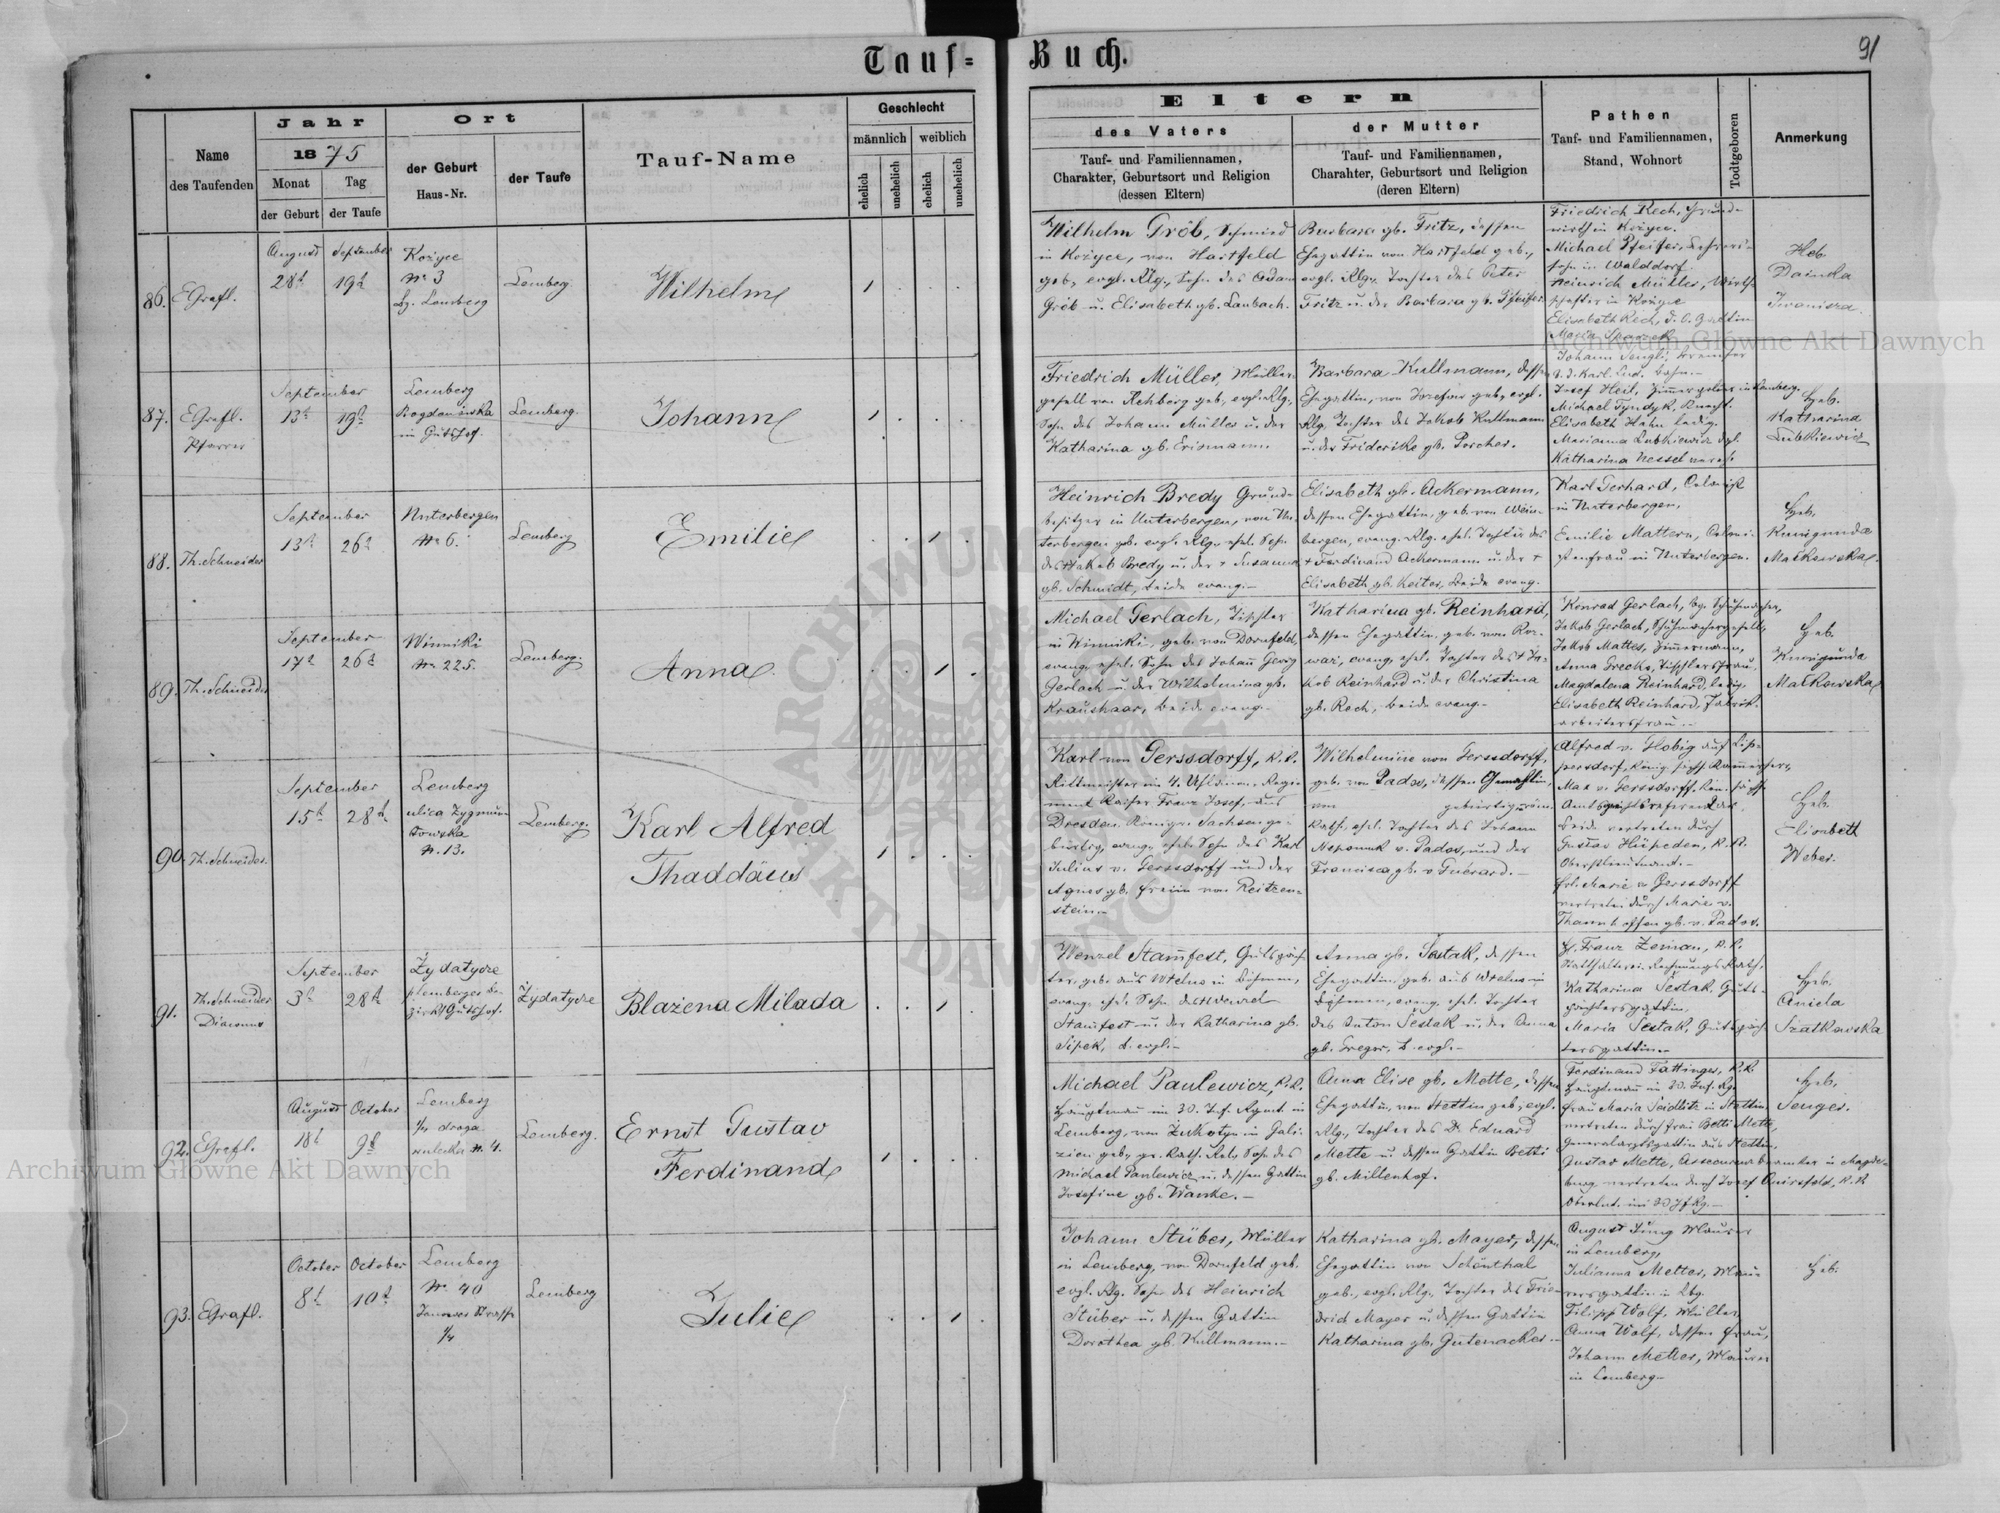 Tauf=
Buch.
91
Name
des Taufenden
Jahr
1875
Monat
Tag
der Geburt
der Taufe
Ort
der Geburt
Haus-Nr.
der Taufe
Tauf-Name
Geschlecht
männlich
weiblich
ehelich
unehelich
ehelich
unehelich
Eltern
des Vaters
Tauf- und Familiennamen,
Charakter, Geburtsort und Religion
(dessen Eltern)
der Mutter
Tauf- und Familiennamen,
Charakter, Geburtsort und Religion
(deren Eltern)
Pathen
Tauf- und Familiennamen,
Stand, Wohnort
Todtgeboren
Anmerkung
86. EGrafl.
August September
28t 19t
Kozyce
No 3
bz. Lemberg
Lemberg
Wilhelm
Wilhelm Gröb, Schmied
in Kozyce, von Hartfeld
geb, evgl. Rlg., Sohn des Adam
Gröb u. Elisabeth gb. Laubach.
Barbara gb. Fritz, dessen
Ehegattin von Hartfeld geb.,
evgl. Rlg. Tochter des Peter
Fritz u. der Barbara gb. Pfeifer
Friedrich Rech, Grund-
wirth in Kozyce.
Michael Pfeifer, Lehrers-
sohn in Walddorf.
Heinrich Müller, Wirth-
schafter in Kozyce
Elisabeth Rech, d. O. Gattin
Heb
Dainska
Iwanicza.
87. EGrafl.
Pfarrer
September
13t 19t
Lemberg
Bogdanówka
im Gutshof.
Lemberg.
Johann
Friedrich Müller, Müller-
gesell von Rehberg geb, evgl. Rlg.,
Sohn des Johann Müller u. der
Katharina gb. Erismann.
Barbara Kullmann, dessen
Ehegattin, von Josefow geb, evgl.
Rlg. Tochter des Jakob Kullmann
u. der Friderike gb. Porcher.
Josef Heil, Zimmerpolier in Lemberg.
Michael Tyndyk, Knecht.
Elisabeth Hahn ledig.
Marianna Lubkiewicz dgl.
Katharina Nessel
Heb.
Katharina
Lubkiewicz
88. Th. Schneider
September
13t 26t
Unterbergen
No 6.
Lemberg
Emilie
Heinrich Bredy Grund-
besitzer in Unterbergen, von Un-
terbergen gb. evgl. Rlg. ehel. Sohn
des + Jakob Bredy u. der + Susanna
gb. Schmidt, beide evang.-
Elisabeth gb. Ackermann,
dessen Ehegattin, geb. von Wein-
bergen, evang. Rlg. ehel. Tochter des
+ Ferdinand Ackermann u. der +
Elisabeth gb. Keiter, beide evang.
Karl Gerhard, Colonist
in Unterbergen,
Emilie Mattern, Coloni-
stenfrau in Unterbergen.
Heb.
Kunigunda
Małkowska.
89. Th. Schneider
September
17t 26t
Winniki
No 225.
Lemberg.
Anna
Michael Gerlach, Tischler
in Winniki, geb. von Dornfeld,
evang. ehel. Sohn des Johann Georg
Gerlach u. der Wilhelmina gb.
Kraushaar, beide evang.-
Katharina gb. Reinhard,
dessen Ehegattin. geb. von
evang. ehel. Tochter des + Ja-
kob Reinhard u. der Christina
gb. Roch, beide evang.-
Konrad Gerlach, bg. Schuhmacher,
Jakob Gerlach, Schuhmachergesell,
Jakob Mattes, Zimmermann,
Anna Grecko, Tischlersfrau.
Magdalena Reinhard, ledig.
Elisabeth Reinhard, Fabriks-
arbeitersfrau.-
Heb.
Kunigunda
Małkowska
90. Th. Schneider.
September
15t 28t
Lemberg
ulica Zygmun-
towska
N. 13.
Lemberg.
Karl Alfred
Thaddäus
Karl von Gerssdorff, K. K.
Rittmeister im 4. Uhlanen-Regi-
ment Kaiser Franz Josef, aus
Dresden Königr. Sachsen ge-
bürtig, evang. ehel. Sohn des Karl
Julius v. Gerssdorff und der
Agnes gb. Freiin von Reitzen-
stein.-
Wilhelmine von Gerssdorff,
geb. von Pados, dessen Gemahlin,
von gebürtig, röm.
kath. ehel. Tochter des Johann
Nepomuk v. Pados, und der
Francisca gb. v. Guérard.-
Alfred v. Globig auf Lip-
persdorf, Königl. sächs. Kammerherr,
Max v. Gerssdorff, Kön. sächs.
Amtsgerichtsreferendar
beide vertreten durch
Gustav Hüpeden, K. K.
Oberstlieutenant.-
Frl. Marie v. Gerssdorff
vertreten durch Marie v.
Thannhoffen gb. v. Pados.
Heb.
Elisabeth
Weber.
91. Th. Schneider
Diaconus
September
3t 28t
Żydatycze
Lemberger Be-
zirk, Gutshof.
Żydatycze
Blażena Milada
Wenzel Stamfest, Gutspäch-
ter, geb. aus Wtelno in Böhmen,
evang. ehel. Sohn des Wenzel
Stamfest u. der Katharina gb.
Sipek, b. evgl.-
Anna gb. Šestak, dessen
Ehegattin, geb. aus Wtelno in
Böhmen, evang. ehel. Tochter
des Anton Šestak u. der Anna
gb. Greger, b. evgl.-
H. Franz Zeman, K. K.
Statthalterei-Rechnungs-Rath,
Katharina Šestak, Guts-
pächtersgattin.
Maria Šestak, Gutspäch-
tersgattin.-
Heb.
Aniela
Szatkowska
92. EGrafl.
August October
18t 9t
Lemberg
4/4 droga
wulecka N. 4.
Lemberg.
Ernst Gustav
Ferdinand
Michael Paulewicz, K. K.
Hauptmann im 30. Inf. Rgmt. in
Lemberg, von Zukotyn in Gali-
zien geb., gr. kath. Rel., Sohn des
Michael Paulewicz u. dessen Gattin
Josefine gb. Wanke.-
Anna Elise gb. Mette, dessen
Ehegattin, von Stettin geb, evgl.
Rlg., Tochter des Dr. Eduard
Mette u. dessen Gattin Betti
gb. Millenhof.
Ferdinand Fattinger, K. K.
Hauptmann im 30. Inf. Rg.
Frau Maria Seidlitz in Stettin,
vertreten durch Frau Betti Mette,
Generalarztgattin aus Stettin,
Gustav Mette, Assecuranzbeamter in Magde-
burg vertreten durch Josef Quirsfeld, K. K.
Oberlnt. im 30 Jf. Rg.-
Heb.
Senger.
93. EGrafl.
October October
8t 10t
Lemberg
No 40
Janower Strasse
4/4
Lemberg
Julie
Johann Stüber, Müller
in Lemberg, von Dornfeld geb.
evgl. Rlg. Sohn des Heinrich
Stüber u. dessen Gattin
Dorothea gb. Kullmann.-
Katharina gb. Mayer, dessen
Ehegattin von Schönthal
geb., evgl. Rlg., Tochter des Frie-
drich Mayer u. dessen Gattin
Katharina gb. Gutenacker.-
August Jung Maurer
in Lemberg,
Julianna Metter, Mau-
rersgattin in Lbg.
Filipp Wolf, Müller,
Anna Wolf, dessen Frau,
Johann Metter, Maurer
in Lemberg-
Heb.
Archiwum Główne Akt Dawnych
Archiwum Główne Akt Dawnych
ARCHIWUM
AKT DAWNYCH